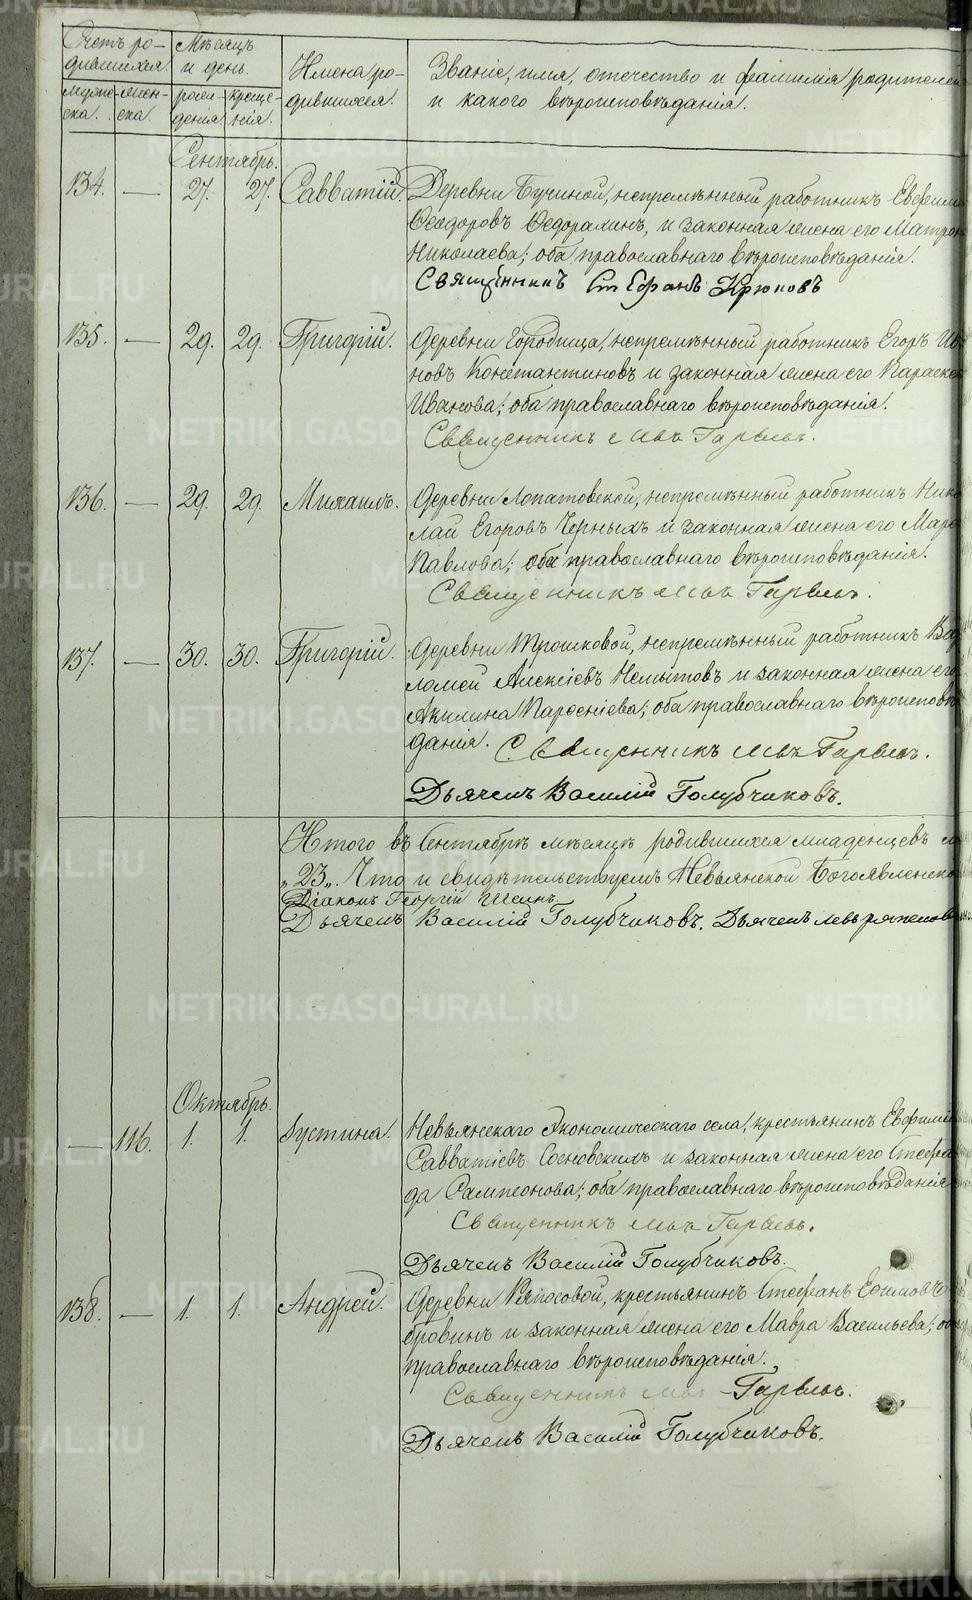 Счетъ ро-
дившихся.
Мѣсяцъ
и день.
Имена ро-
дившихся.
Званіе, имя, отечество и фамилія родителей
и какого вѣроисповѣданія.
муже-
ска.
жен-
ска.
рож-
денія.
креще-
нія.
Сентябрь.
134. — 27. 27. Савватій. Деревни Бучиной, непремѣнный работникъ Евфими
Ѳеодоровъ Ѳедоралинъ, и законная жена его Матрон
Николаева; оба православнаго вѣроисповѣданія.
Священникъ Стефанъ Крюковъ
135. — 29. 29. Григорій. Деревни Городища, непремѣнный работникъ Егоръ Ив
новъ Константиновъ и законная жена его Параске
Иванова; оба православнаго вѣроисповѣданія.
Священникъ
136. — 29. 29. Михаилъ. Деревни Лопатовской, непремѣнный работникъ Нико
лай Егоровъ Черныхъ и законная жена его Мар
Павлова; оба православнаго вѣроисповѣданія.
Священникъ
137. — 30. 30. Григорій. Деревни Трошковой, непремѣнный работникъ Вар
ломей Алексіевъ Немытовъ и законная жена его
Акилина Парѳеніева; оба православнаго вѣроисповѣ
данія. Священникъ
Дьячекъ Василій Голубчиковъ.
Итого въ Сентябрѣ мѣсяцѣ родившихся младенцевъ
„23„. Что и свидѣтельствуемъ Невьянской Богоявленско
Діаконъ Георгій
Дьячекъ Василій Голубчиковъ. Дьячекъ
Октябрь.
— 116. 1. 1. Іустина. Невьянскаго Экономическаго села, крестьянинъ Евфимій
Савватіевъ Сосновскихъ и законная жена его Стефа
да Сампсонова; оба православнаго вѣроисповѣданія
Священникъ
Дьячекъ Василій Голубчиковъ.
138. — 1. 1. Андрей. Деревни Ряпосовой, крестьянинъ Стефанъ Ефимовъ
бровинъ и законная жена его Мавра Васильева; об
православнаго вѣроисповѣданія.
Священникъ
Дьячекъ Василій Голубчиковъ.
METRIKI.GASO-URAL.RU